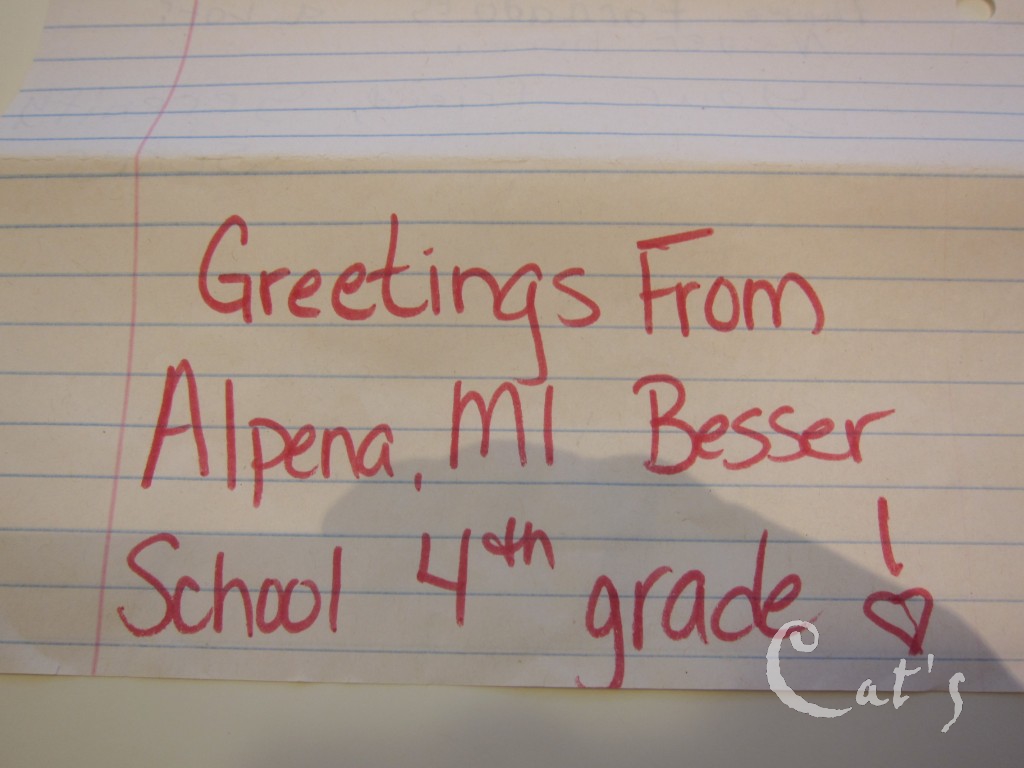 Greetings From
Alpena, MI Besser
School 4th grade!
Cat's